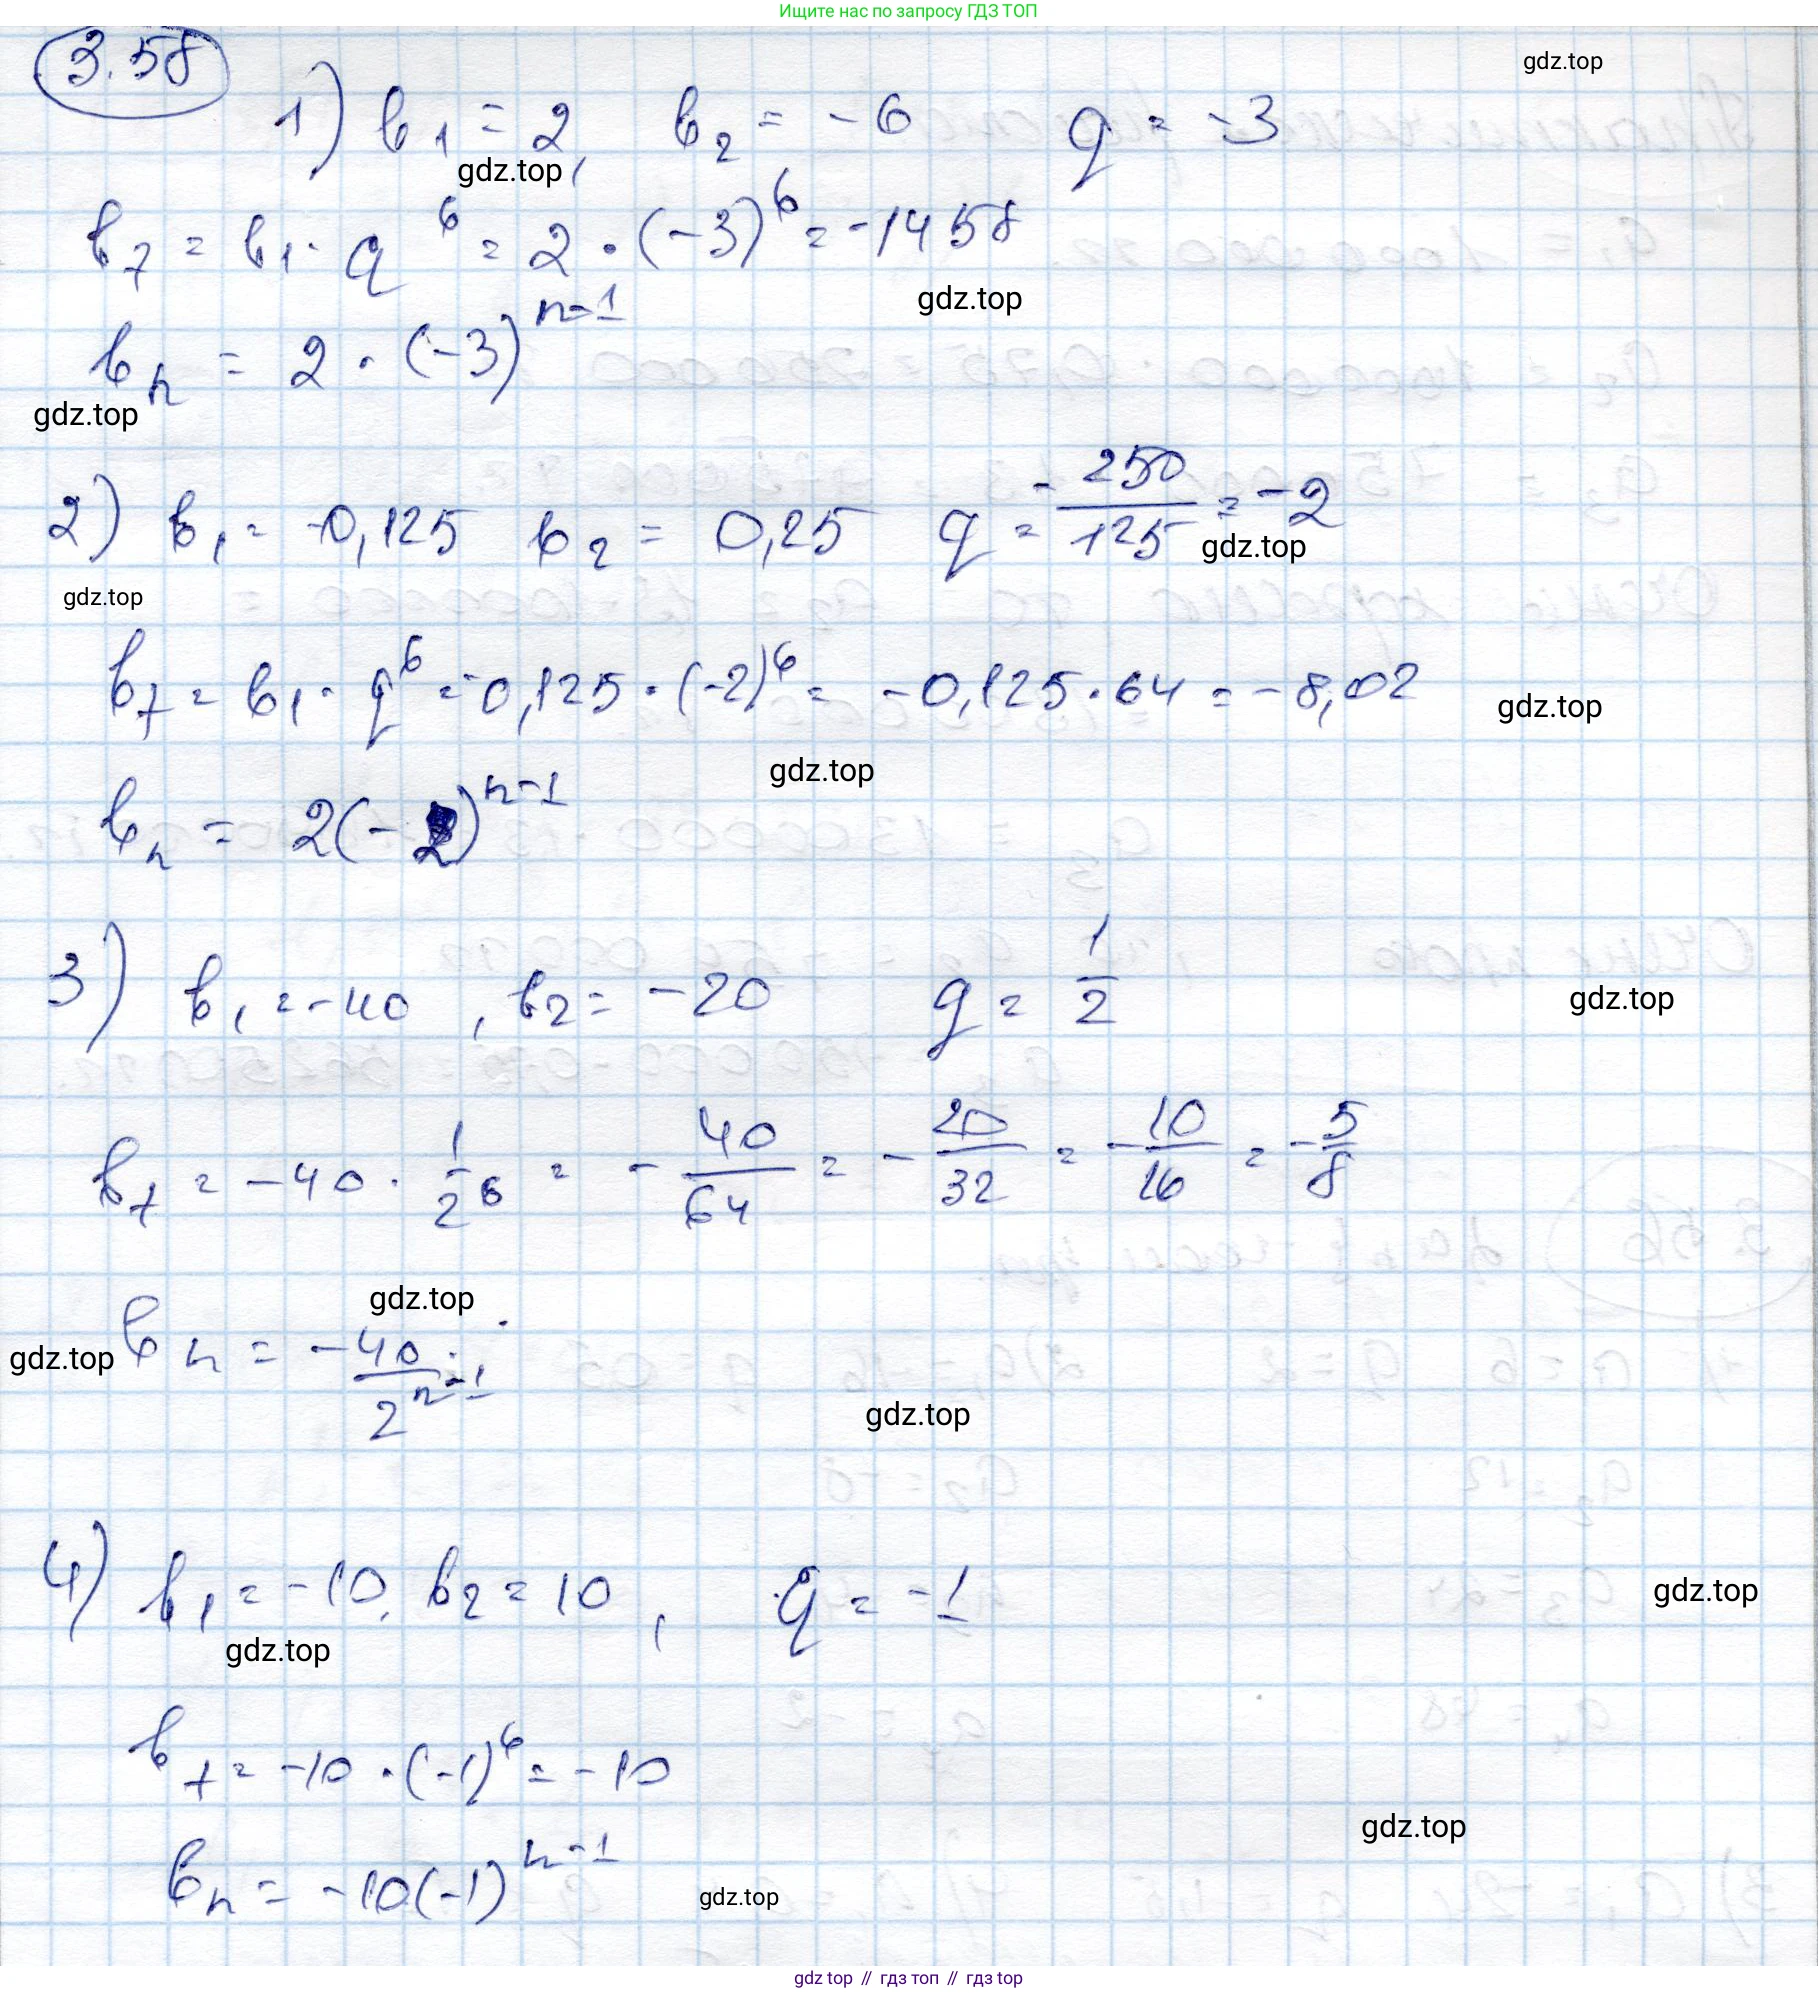 Ищите нас по запросу ГДЗ ТОП
3.58
gdz.top
1) b₁ = 2, b₂ = -6 q = -3
gdz.top
b₇ = b₁ · q⁶ = 2 · (-3)⁶ = -1458
gdz.top
bₙ = 2 · (-3)ⁿ⁻¹
gdz.top
2) b₁ = -0,125 b₂ = 0,25 q = -250/125 = -2
gdz.top
gdz.top
b₇ = b₁ · q⁶ = -0,125 · (-2)⁶ = -0,125 · 64 = -8,02
gdz.top
gdz.top
bₙ = 2(-2)ⁿ⁻¹
3) b₁ = -40, b₂ = -20 q = 1/2
gdz.top
b₇ = -40 · 1/2⁶ = -40/64 = -20/32 = -10/16 = -5/8
gdz.top
gdz.top
bₙ = -40/2ⁿ⁻¹
gdz.top
4) b₁ = -10, b₂ = 10, q = -1
gdz.top
gdz.top
b₇ = -10 · (-1)⁶ = -10
gdz.top
bₙ = -10(-1)ⁿ⁻¹
gdz.top
gdz top // гдз топ // gdz top